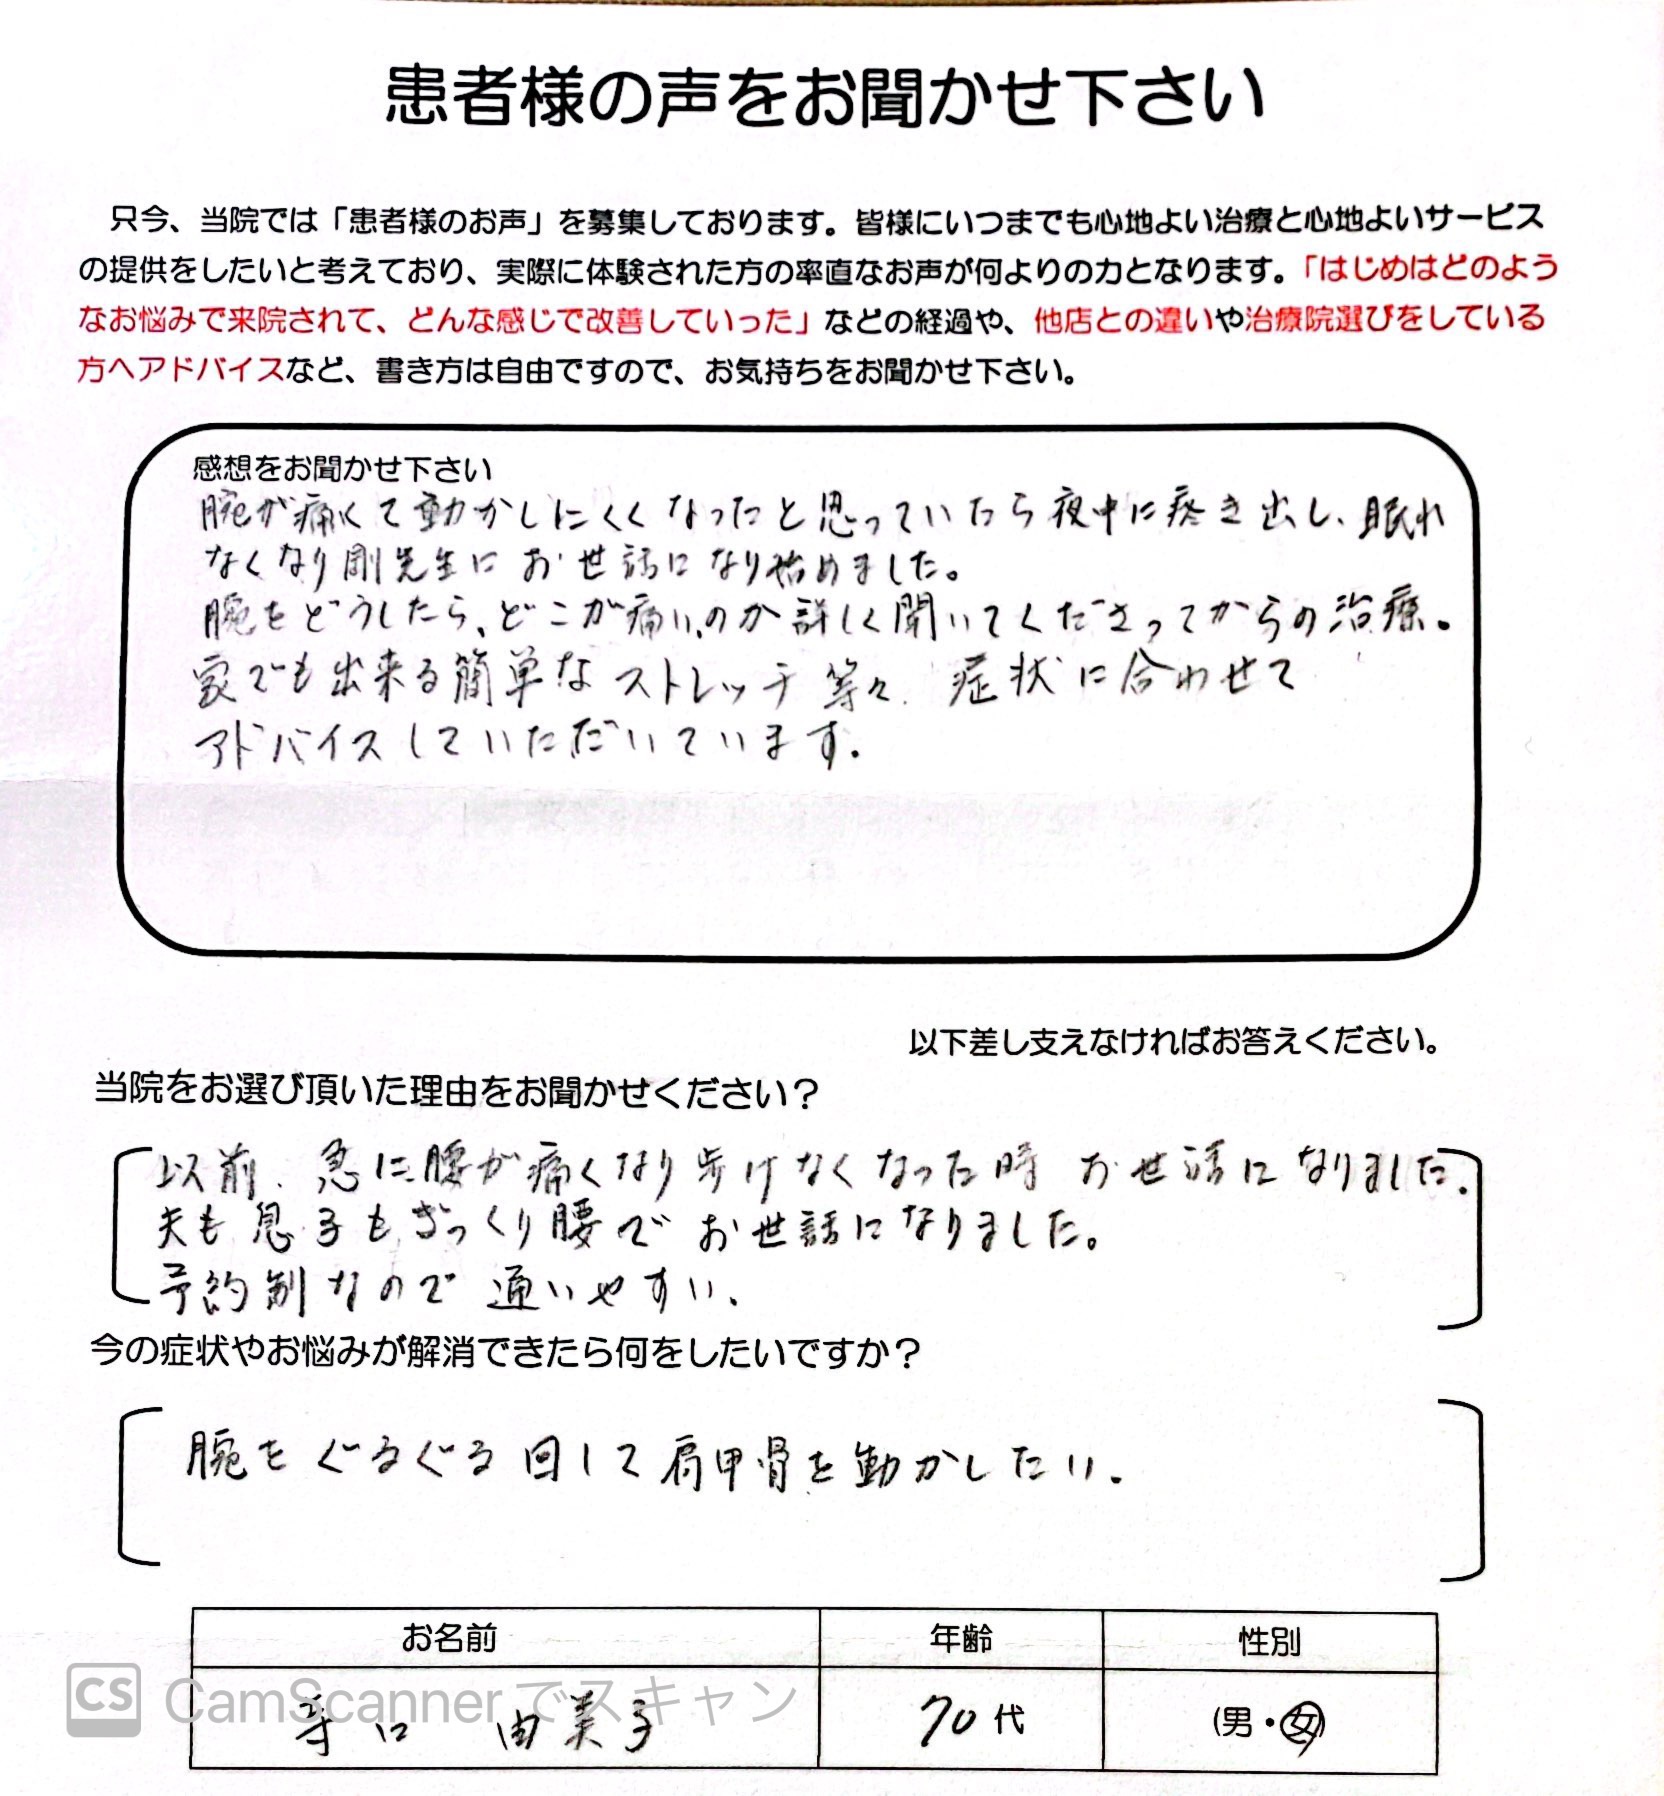 患者様の声をお聞かせ下さい
只今、当院では「患者様のお声」を募集しております。皆様にいつまでも心地よい治療と心地よいサービス
の提供をしたいと考えており、実際に体験された方の率直なお声が何よりの力となります。「はじめはどのよう
なお悩みで来院されて、どんな感じで改善していった」などの経過や、他店との違いや治療院選びをしている
方へアドバイスなど、書き方は自由ですので、お気持ちをお聞かせ下さい。
感想をお聞かせ下さい
腕が痛くて動かしにくくなったと思っていたら夜中に疼き出し、眠れ
なくなり剛先生にお世話になり始めました。
腕をどうしたら、どこが痛いのか詳しく聞いてくださってからの治療。
家でも出来る簡単なストレッチ等々、症状に合わせて
アドバイスしていただいています。
以下差し支えなければお答えください。
当院をお選び頂いた理由をお聞かせください？
以前、急に腰が痛くなり歩けなくなった時お世話になりました。
夫も息子もぎっくり腰でお世話になりました。
予約制なので通いやすい、
今の症状やお悩みが解消できたら何をしたいですか？
腕をぐるぐる回して肩甲骨を動かしたい。
お名前 年齢 性別
寺口 由美子 70代 (男・女)
CS CamScannerでスキャン